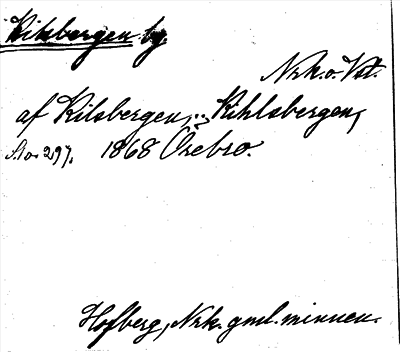 Kilsbergen by.
Nrk. o. Vst.
af Kilsbergen, „ Kihlsbergen,
S. 297. 1868 Örebro.
Hofberg, Nrk. gml. minnen.